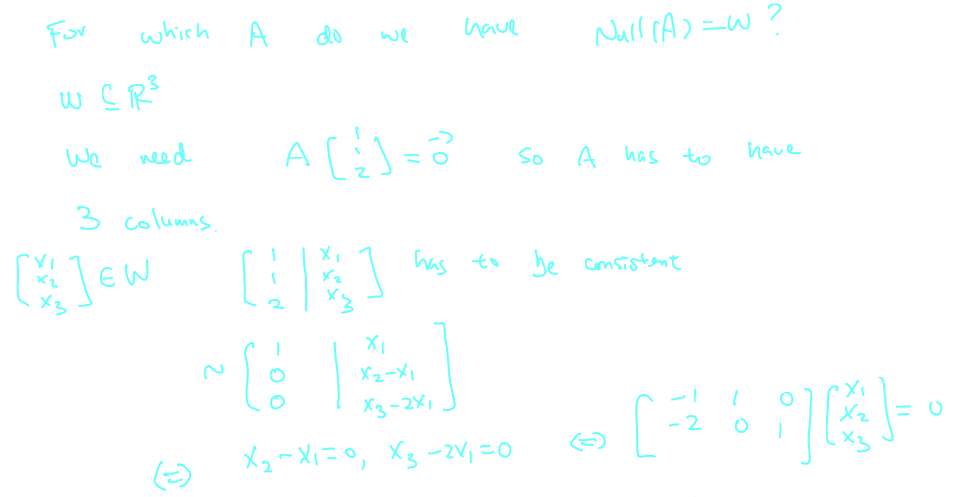 For which A do we have Null(A)=W?
W ⊆ ℝ³
We need A [1 1 2] = 0⃗ so A has to have
3 columns.
[x₁ x₂ x₃] ∈ W [1 1 2 | x₁ x₂ x₃] has to be consistent
~ [1 0 0 | x₁ x₂-x₁ x₃-2x₁]
(=) x₂-x₁=0, x₃-2x₁=0 (=) [-1 1 0 -2 0 1] [x₁ x₂ x₃] = 0